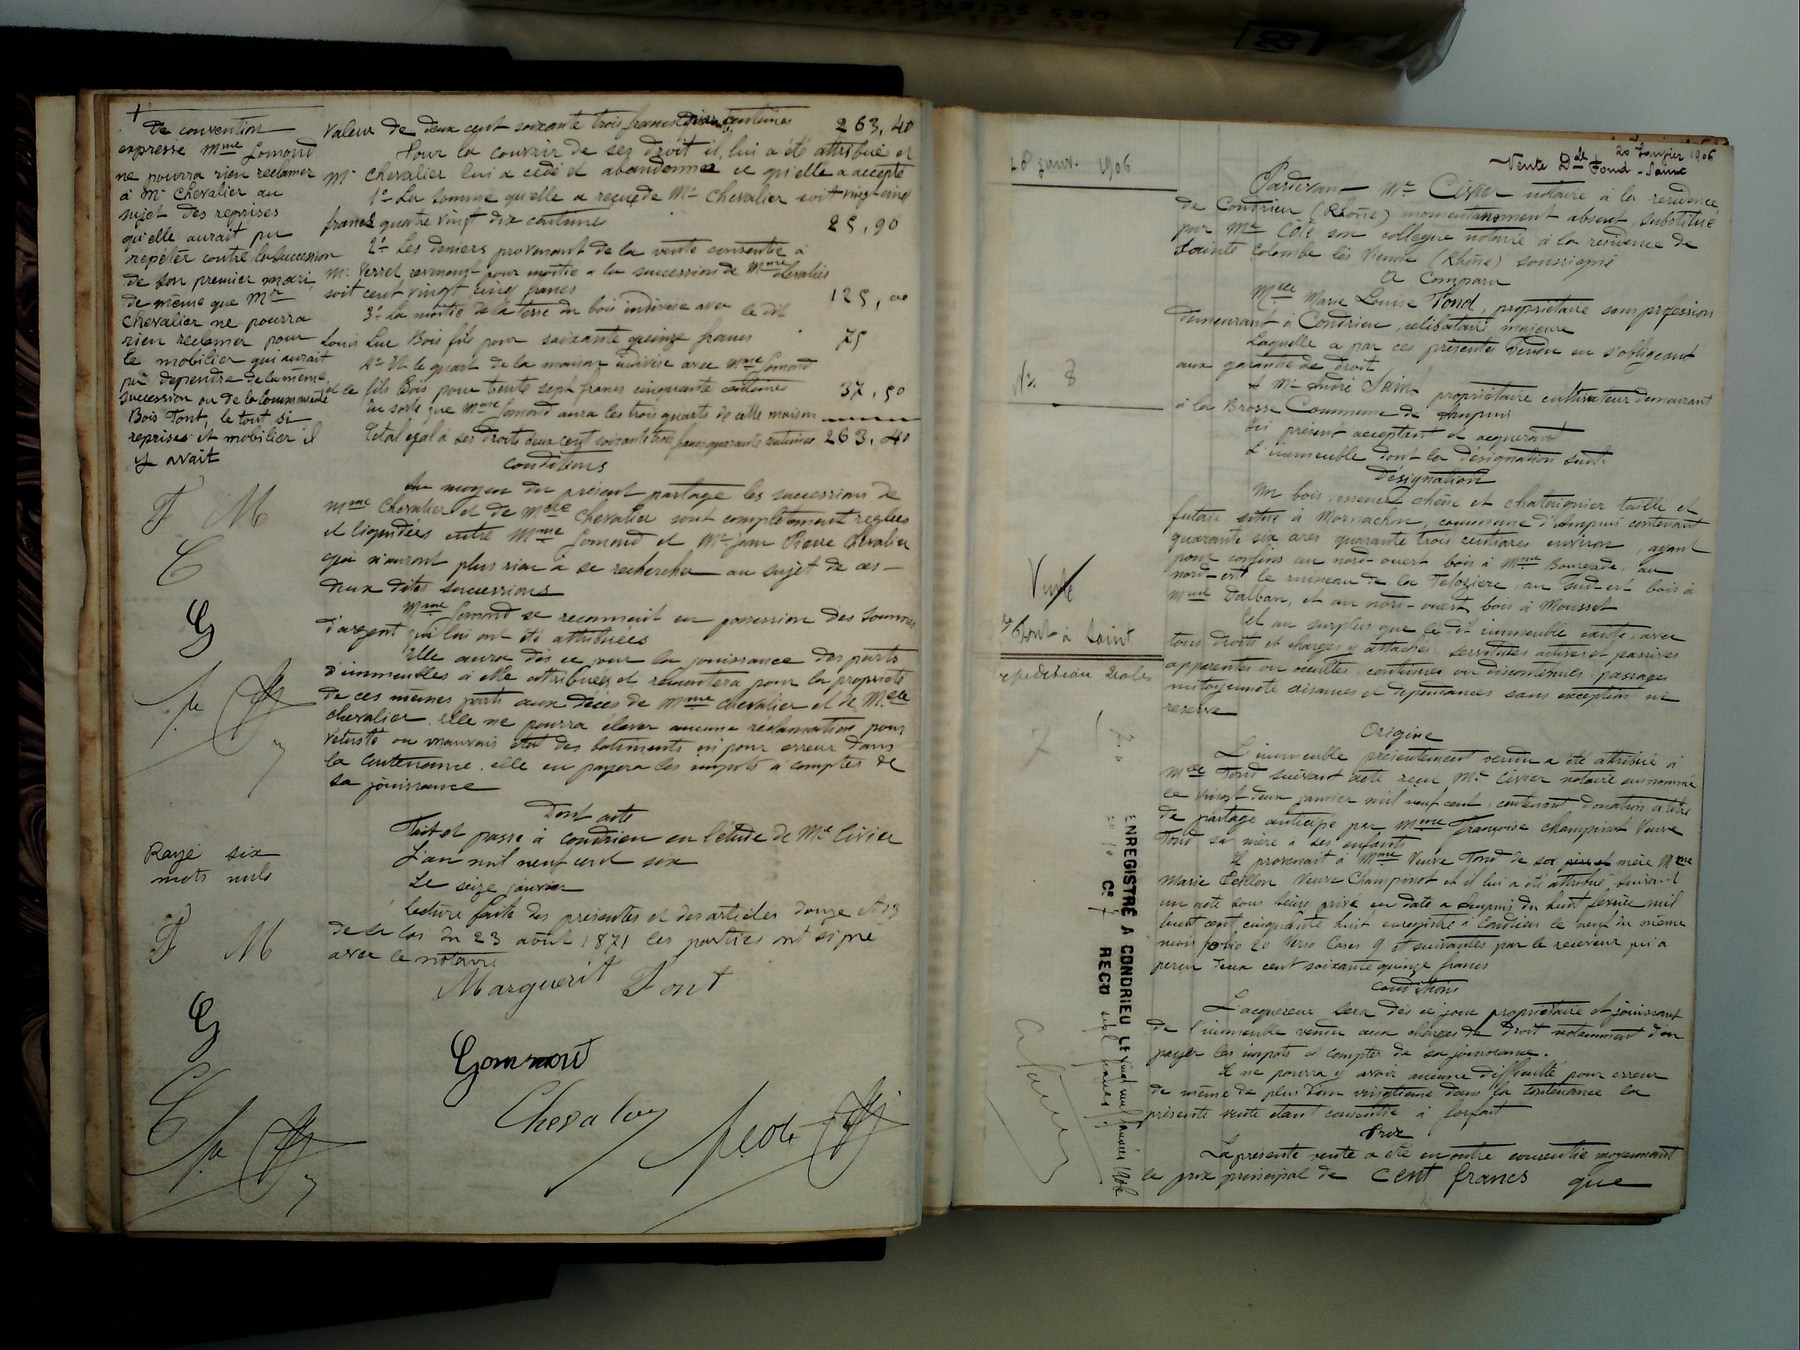 +
de convention
expresse Mme Gomond
ne pourra rien réclamer
à Mr Chevalier au
sujet des reprises
qu'elle aurait pu
répéter contre la succession
de son premier mari,
de même que Mr
Chevalier ne pourra
rien réclamer pour
le mobilier qui aurait
pu dépendre de la même
succession ou de la communauté
Bois Font, le tout si
reprises et mobilier il
y avait
F M
C
G
Rayé six
mots nuls
F M
G
C
valeur de deux cent soixante trois francs centimes 263,40
Pour la couvrir de ses droits il lui a été attribué et
Mr Chevalier lui a cédé et abandonné ce qu'elle a accepté
1º La somme qu'elle a reçue de Mr Chevalier soit vingt cinq
francs quatre vingt dix centimes 25,90
2º Les deniers provenant de la vente consentie à
Mr Verret revenant pour moitié à la succession de Mme Chevalier
soit cent vingt cinq francs 125,00
3º La moitié de la terre du bois indivise avec le dit
Louis Luc Bois fils pour soixante quinze francs 75
4º Et le quart de la maison indivise avec Mme Gomond
et le fils Bois pour trente sept francs cinquante centimes 37,50
En sorte que Mme Gomond aura les trois quarts de cette maison
Total égal à ses droits deux cent soixante trois francs quarante centimes 263,40
Conditions
Au moyen du présent partage les successions de
Mme Chevalier et de Melle Chevalier sont complètement réglées
et liquidées entre Mme Gomond et Mr Jean Pierre Chevalier
qui n'auront plus rien à se rechercher au sujet de ces
deux dites successions
Mme Gomond se reconnait en possession des sommes
d'argent qui lui ont été attribuées
Elle aura dès ce jour la jouissance des parts
d'immeubles à elle attribuées et remontera pour la propriété
de ces mêmes parts aux décès de Mme Chevalier et de Melle
Chevalier. elle ne pourra élever aucune réclamation pour
vétusté ou mauvais état des bâtiments ni pour erreur dans
la contenance. elle en payera les impots à compter de
sa jouissance
Dont acte
Fait et passé à Condrieu en l'étude de Me Civier
L'an mil neuf cent six
Le seize janvier
Lecture faite des présentes et des articles douze et 13
de la loi du 23 août 1871 les parties ont signé
avec le notaire
Marguerit Font
Gommont
Chevalier
20 Janvier 1906
Vente Dlle Fond - Saint
28 janv. 1906
No 8
Vente
Font à Saint
expédition 2 roles
ENREGISTRÉ A CONDRIEU LE vingt neuf janvier 1906
Ce 7 RECU sept francs
Pardevant Me Civier notaire à la résidence
de Condrieu (Rhône) momentanément absent, substitué
par Me Cote son collègue notaire à la résidence de
Sainte Colombe lès Vienne (Rhône) soussigné
A Comparu
Melle Marie Louise Fond, propriétaire sans profession
demeurant à Condrieu, célibataire majeure
Laquelle a par ces présentes vendu en s'obligeant
aux garanties de droit
A Mr André Saint propriétaire cultivateur demeurant
à la Brosse Commune de Ampuis
ici présent acceptant et acquérant
L'immeuble dont la désignation suit.
Désignation
Un bois, essence chêne et chataignier taillis et
futaie situé à Mornachon, commune d'Ampuis contenant
quarante six ares quarante trois centiares environ, ayant
pour confins au nord-ouest bois à Mme Bourgade, au
nord-est le ruisseau de la, au sud-est bois à
Mme Dalban, et au nord-ouest bois à Mousset
Tel au surplus que le dit immeuble existe, avec
tous droits et charges y attachés servitudes actives et passives
apparentes ou occultes, continues ou discontinues, passages
mitoyenneté aisances et dépendances sans exception ni
réserve
Origine
L'immeuble présentement vendu a été attribué à
Melle Fond suivant acte reçu Me Civier notaire surnommé
le vingt deux janvier mil neuf cent, contenant donation à titre
de partage anticipé par Mme Françoise Champinot Veuve
Fond sa mère à ses enfants
Il provenait à Mme Veuve Fond de sa mère Mme
Marie Veuve Champinot et il lui a été attribué, suivant
un acte sous seing privé en date à Ampuis du huit février mil
huit cent cinquante huit enregistré à Condrieu le neuf du même
mois folio 20 Verso Cases 9 et suivantes par le receveur qui a
perçu deux cent soixante quinze francs
Conditions
L'acquéreur sera dès ce jour propriétaire et jouissant
de l'immeuble vendu aux charges de droit notamment d'en
payer les impots à compter de sa jouissance.
Il ne pourra y avoir aucune difficulté pour erreur
de même de plus d'un vingtième dans la contenance la
présente vente étant consentie à forfait
Prix
La présente vente a été en outre consentie moyennant
le prix principal de cent francs que